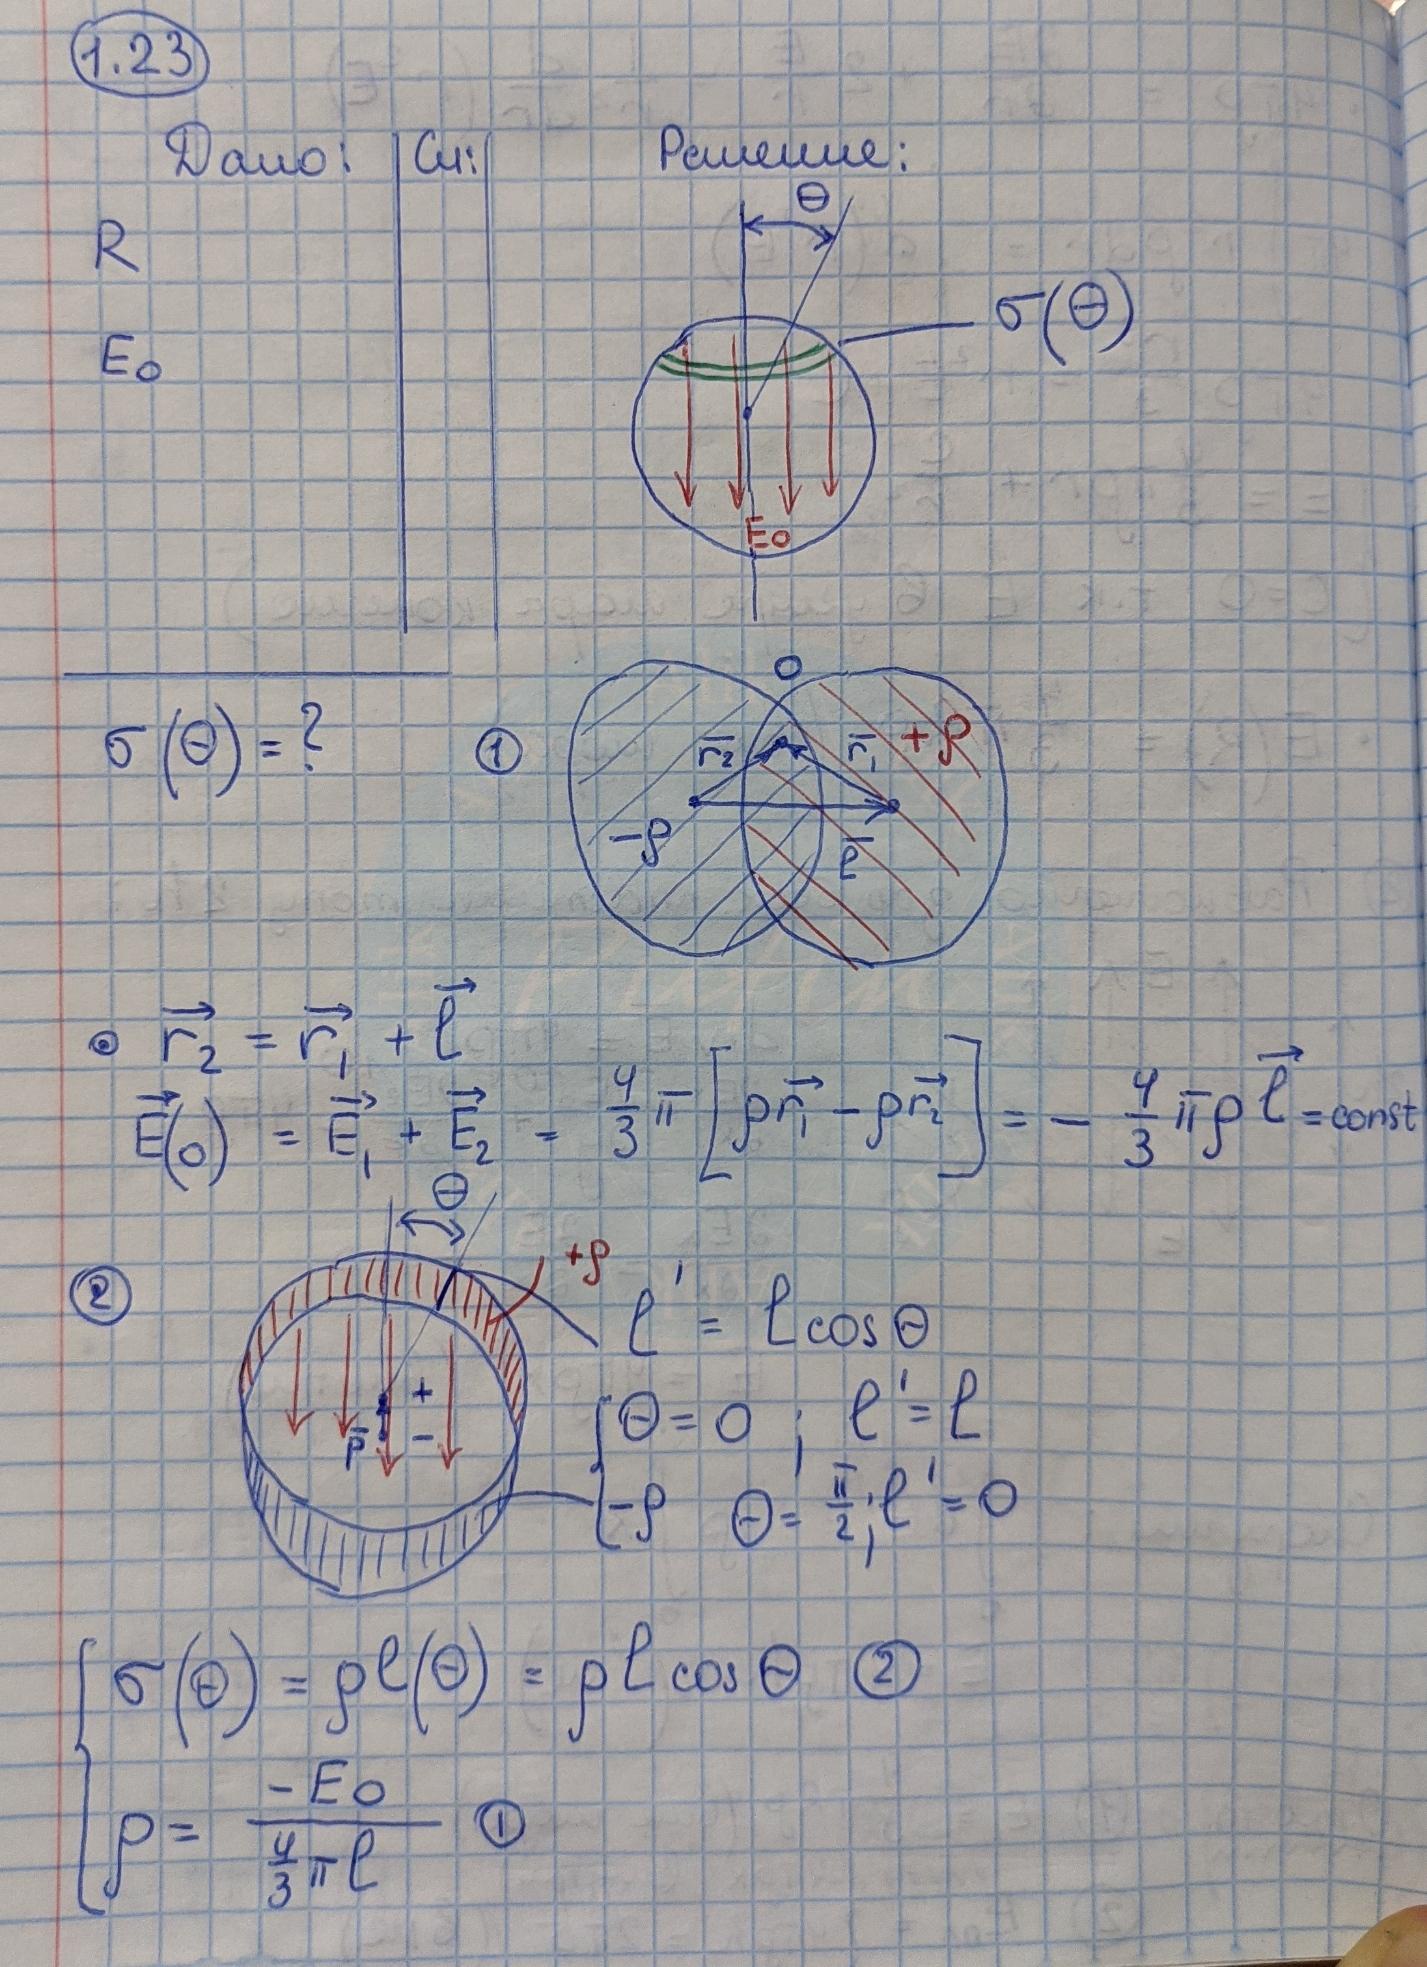 1.23
Дано: Си: Решение:
θ
R
σ(θ)
E₀
E₀
O
σ(θ) = ? ① r̄₂ r̄₁ +ρ
-ρ l̄
• r⃗₂ = r⃗₁ + l⃗
E⃗(0) = E⃗₁ + E⃗₂ = 4/3 π [ρr⃗₁ - ρr⃗₂] = - 4/3 πρ l⃗ = const
θ
② +ρ
l' = l cosθ
+
p̄ -
θ = 0 ; l' = l
-ρ θ = π/2 ; l' = 0
σ(θ) = ρl(θ) = ρl cosθ ②
ρ = -E₀ / (4/3 πl) ①